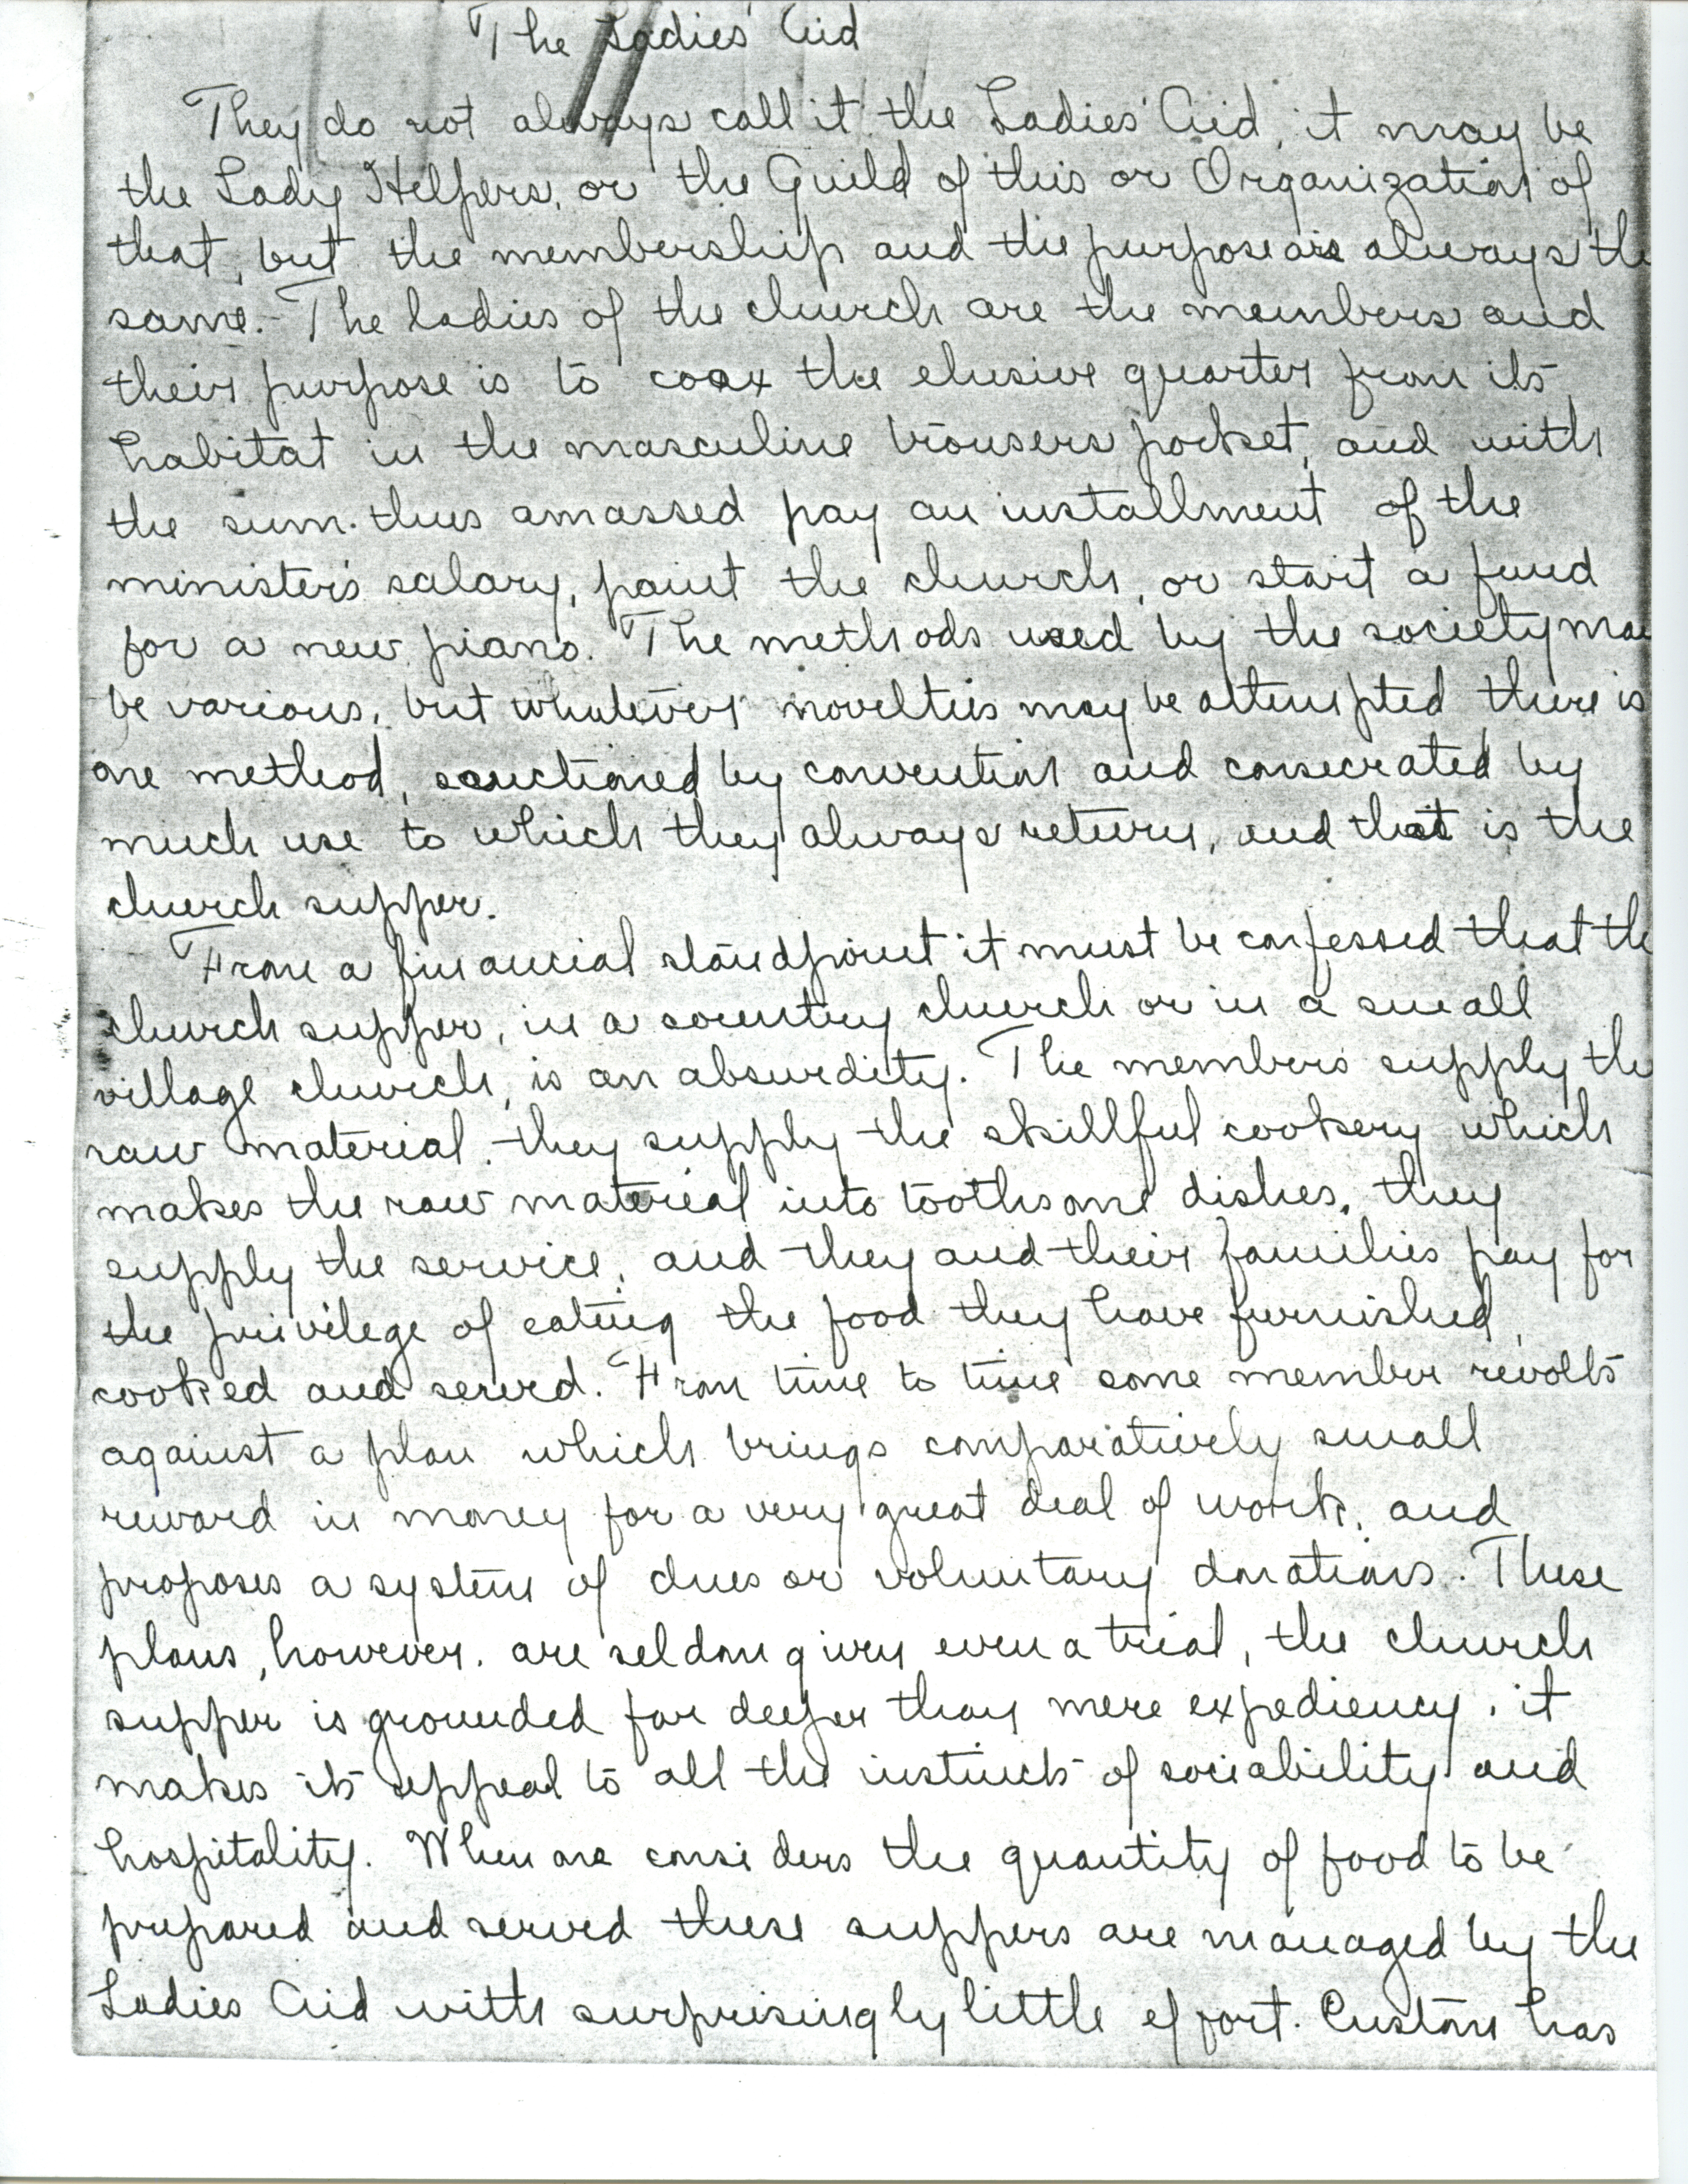 The Ladies' Aid
They do not always call it the Ladies' Aid, it may be
the Lady Helpers, or the Guild of this or Organization of
that, but the membership and the purpose are always the
same. The ladies of the church are the members and
their purpose is to coax the elusive quarter from its
habitat in the masculine trousers pocket, and with
the sum thus amassed pay an installment of the
minister's salary, paint the church, or start a fund
for a new piano. The methods used by the society may
be various, but whatever novelties may be attempted there is
one method, sanctioned by convention and consecrated by
much use to which they always return, and that is the
church supper.
From a financial standpoint it must be confessed that the
church supper, in a country church or in a small
village church, is an absurdity. The members supply the
raw material, they supply the skillful cookery which
makes the raw material into toothsome dishes, they
supply the service, and they and their families pay for
the privilege of eating the food they have furnished,
cooked and served. From time to time some member revolts
against a plan which brings comparatively small
reward in money for a very great deal of work, and
proposes a system of dues or voluntary donations. These
plans, however, are seldom given even a trial, the church
supper is grounded far deeper than mere expediency, it
makes its appeal to all the instincts of sociability and
hospitality. When one considers the quantity of food to be
prepared and served these suppers are managed by the
Ladies Aid with surprisingly little effort. Custom has